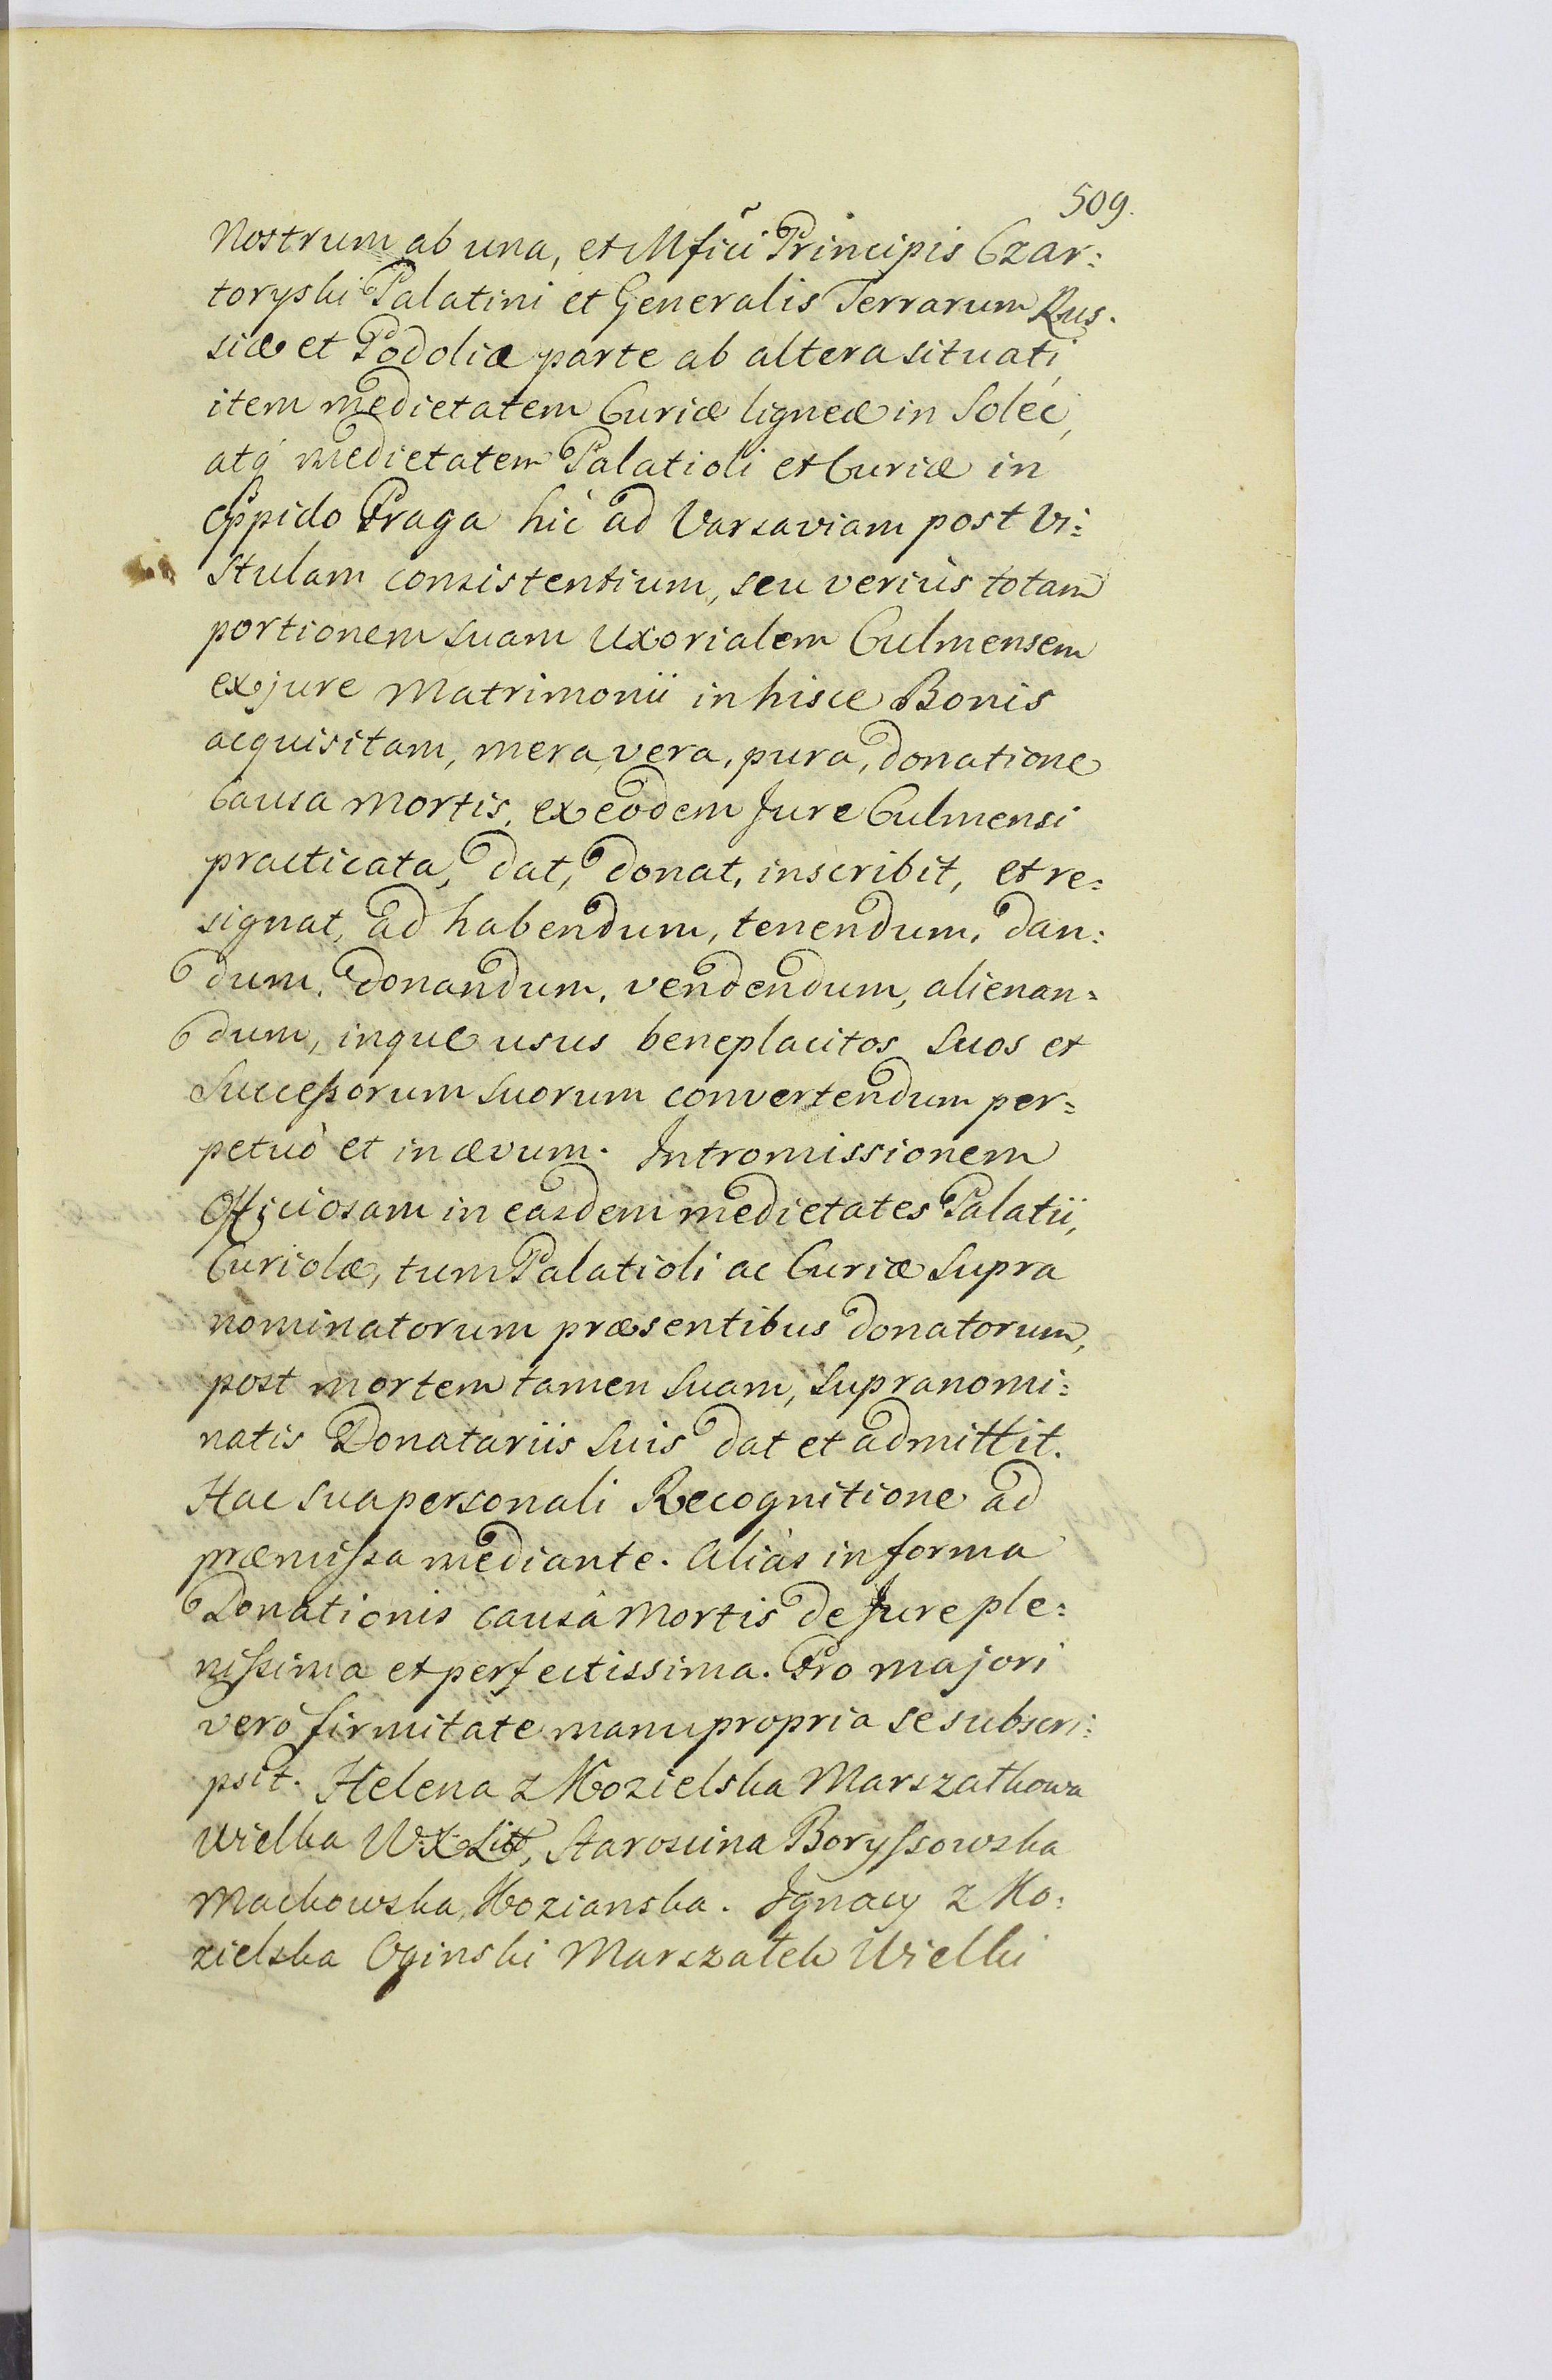 509.
Nostrum ab una, et Mfici Principis Czar:
toryski Palatini et Generalis Terrarum Rus.
siæ et Podoliæ parte ab altera situati,
item medietatem Curiæ ligneæ in Solec,
atq́ medietatem Palatioli et Curiæ in
Oppido Praga hic ad Varsaviam post Vi:
stulam consistentium, seu veriùs totam
portionem suam Uxorialem Culmensem
ex jure Matrimonii in hisce Bonis
acquisitam, mera, vera, pura, donatione
Causa Mortis, ex eodem Jure Culmensi
practicata, dat, donat, inscribit, et re:
signat, ad habendum, tenendum, dan:
dum, donandum, vendendum, alienan:
dum, inque usus beneplacitos suos et
Successorum suorum convertendum per:
petuò et in ævum. Intromissionem
Officiosam in easdem medietates Palatii,
Curiolæ, tum Palatioli ac Curiæ supra
nominatorum præsentibus donatorum,
post mortem tamen suam, supranomi:
natis Donatariis suis dat et admittit.
Hac sua personali Recognitione ad
præmissa mediante. Aliàs in forma
Donationis causâ Mortis de Jure ple:
nissima et perfectissima. Pro majori
verò firmitate manu propria se subscri:
psit. Helena z Kozielska Marszałkowa
Wielka W. X. Litt, Starościna Boryssowska
Mackowska, Kozianska. Ignacy z Ko:
zielska Oginski Marszałek Wielki